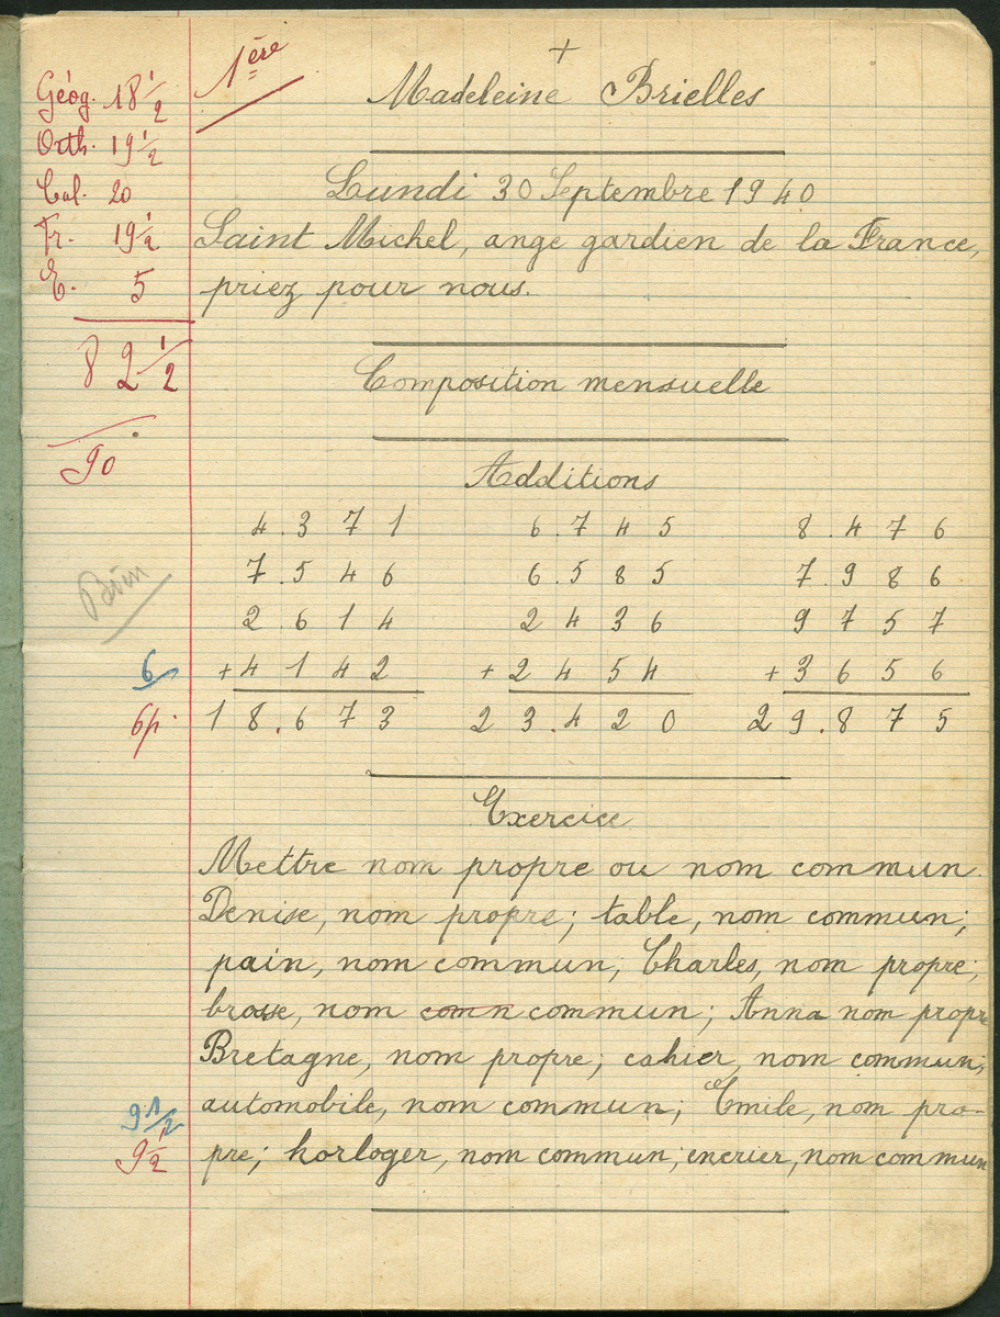 1ère
+
Madeleine Brielles
Géog. 18 1/2
Orth. 19 1/2
Cal. 20
Fr. 19 1/2
E. 5
82 1/2
90
Lundi 30 Septembre 1940
Saint Michel, ange gardien de la France,
priez pour nous.
Composition mensuelle
Additions
4.371 6.745 8.476
7.546 6.585 7.986
2.614 2436 9757
+4142 +2454 +3656
18.673 23.420 29.875
Bien
6
6p.
Exercice
Mettre nom propre ou nom commun.
Denise, nom propre; table, nom commun;
pain, nom commun; Charles, nom propre;
brosse, nom comn commun; Anna nom propre
Bretagne, nom propre; cahier, nom commun;
automobile, nom commun; Emile, nom pro-
pre; horloger, nom commun; encrier, nom commun
9 1/2
9 1/2